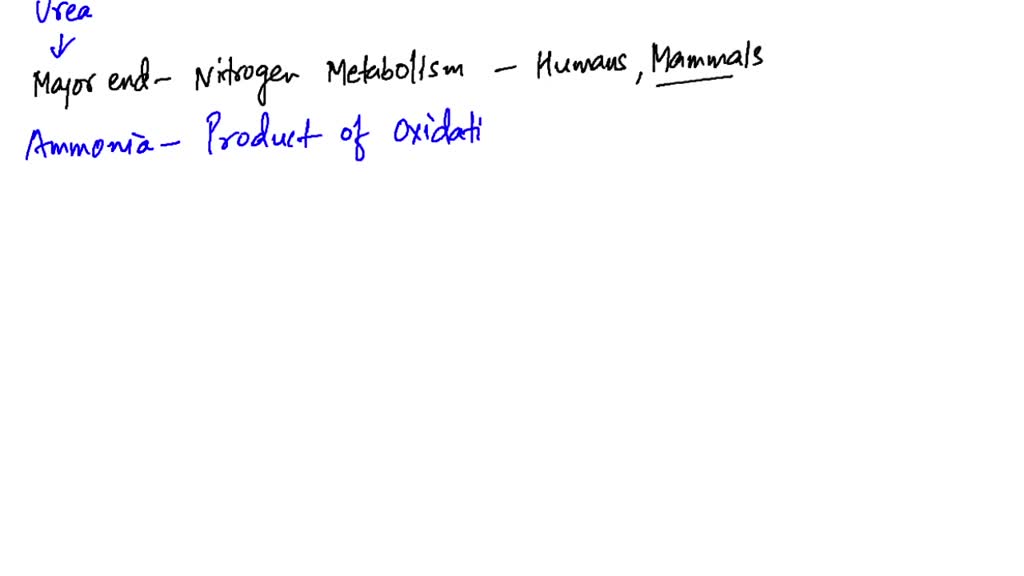 Urea
↓
Major end - Nitrogen Metabolism - Humans, Mammals
Ammonia - Product of Oxidati